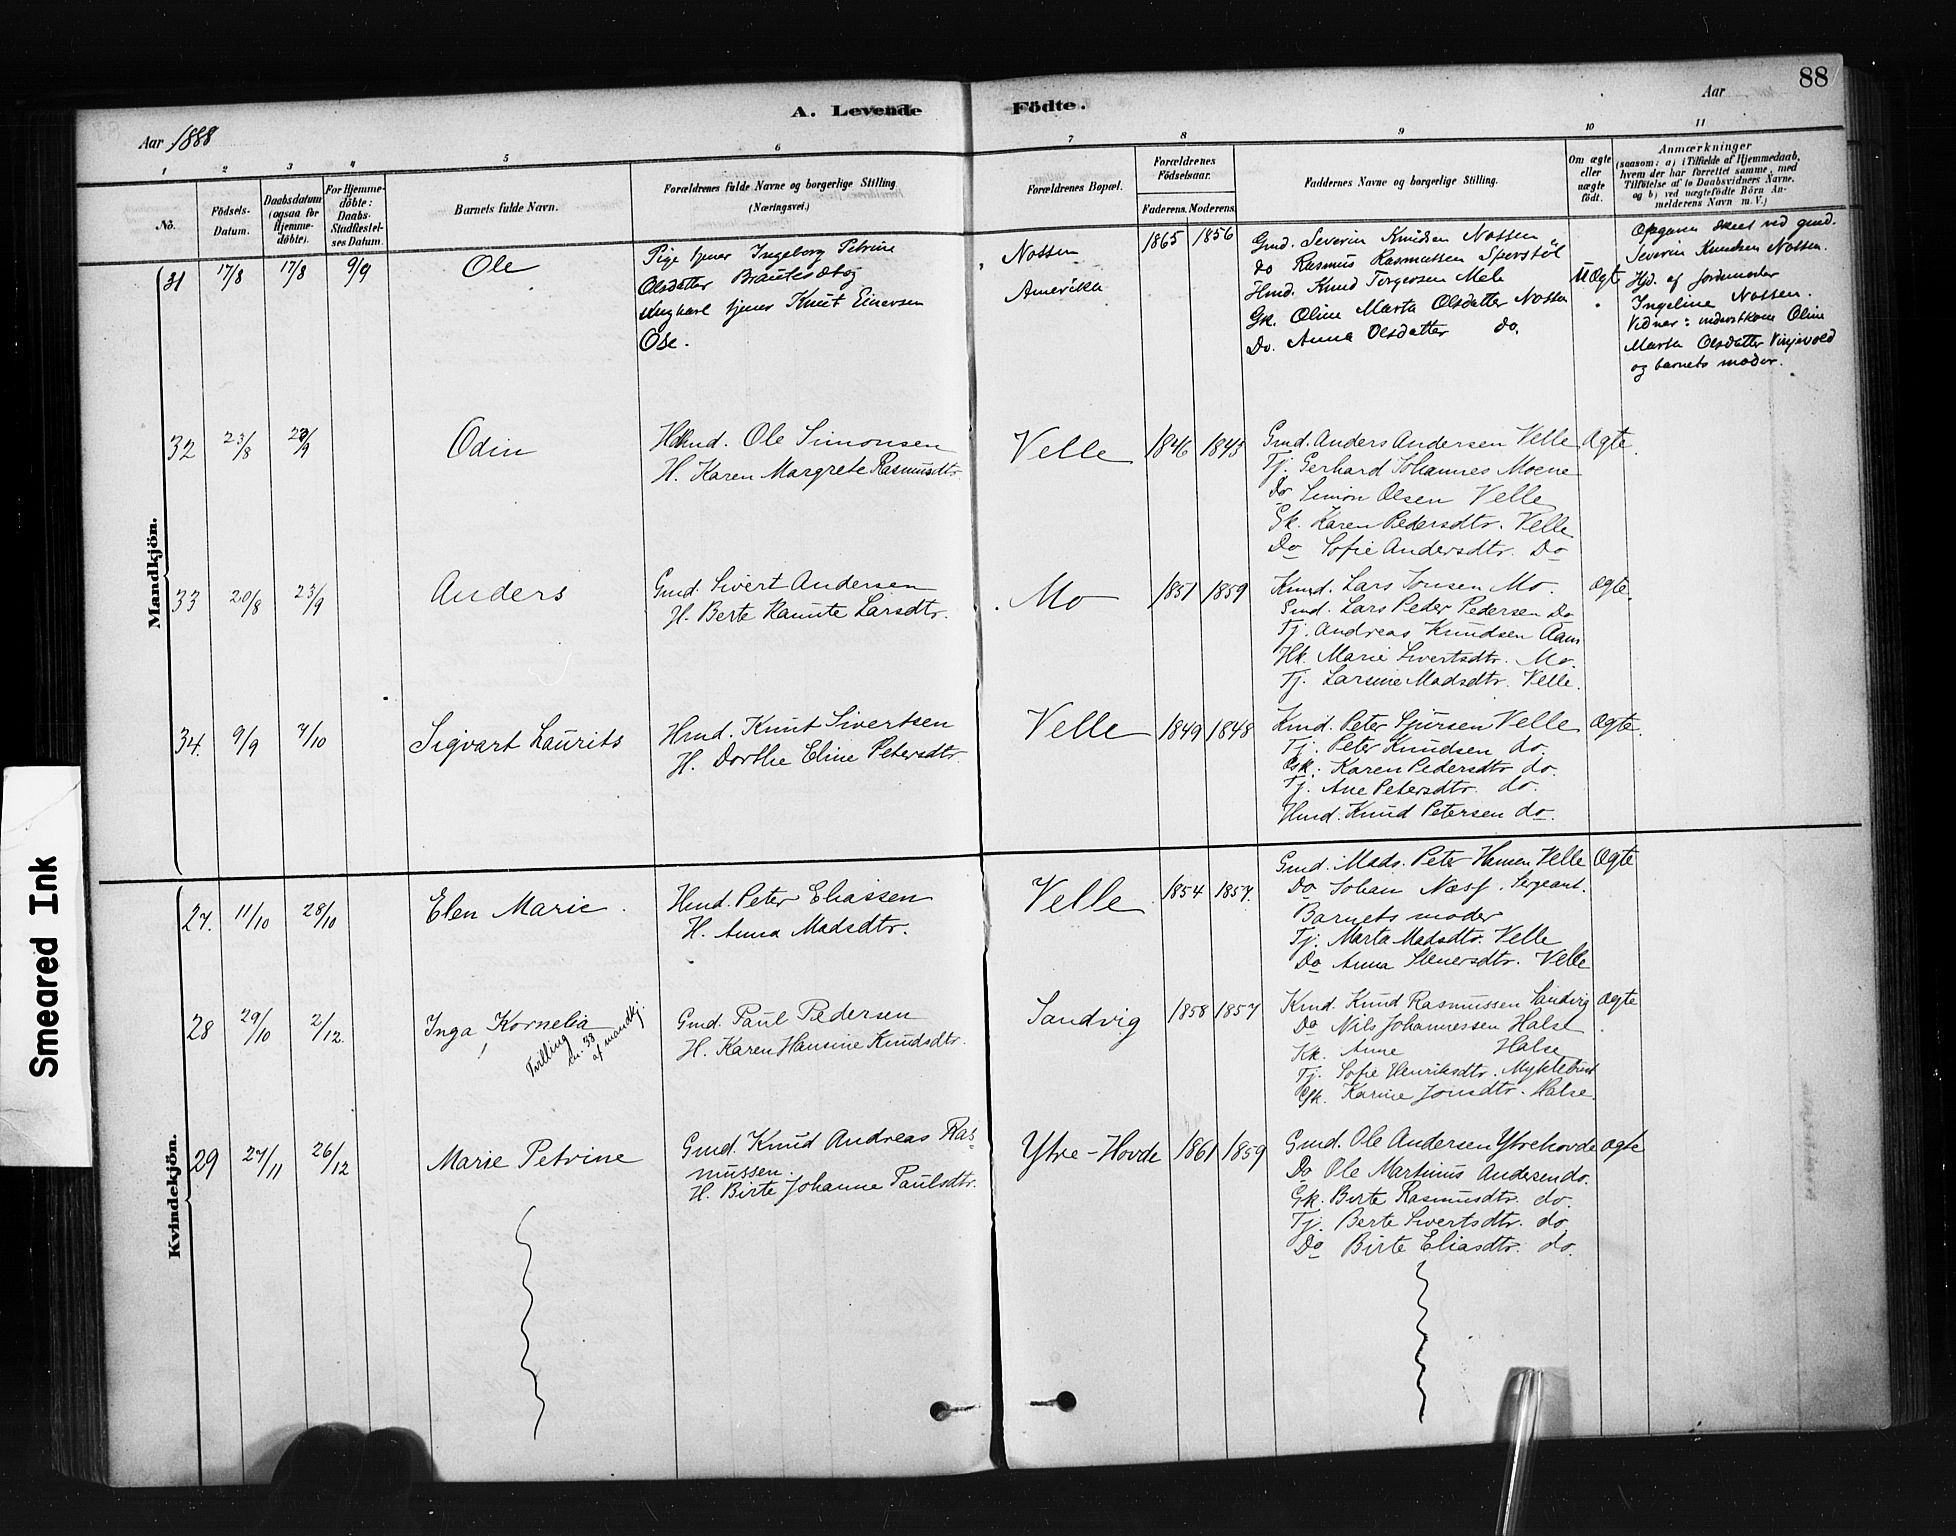 88
A. Levende Födte.
Aar 1888
Aar
1 2 3 4 5 6 7 8 9 10 11
No.
Födsels-Datum.
Daabsdatum (ogsaa for Hjemme-döbte).
For Hjemme-döbte: Daabs-Stadfæstel-ses Datum.
Barnets fulde Navn.
Forældrenes fulde Navne og borgerlige Stilling
(Næringsvei.)
Forældrenes Bopæl.
Forældrenes Födselsaar.
Faderens. Moderens.
Faddernes Navne og borgerlige Stilling.
Om ægte eller uægte födt.
Anmærkninger
(saasom: a) i Tilfælde af Hjemmedaab, hvem der har forrettet samme, med Tilföielse af to Daabsvidners Navne, og b) ved uægtefödte Börn Anmelderens Navn m. V.)
Mandkjön.
31 17/8 17/8 9/9 Ole
Pige tjener Ingeborg Petrine
Olsdatter
Ungkarl tjener Knut Einersen
Ose.
Nossen
Amerika
1865 1856
Gmd. Severin Knudsen Nossen
do Rasmus Rasmussen Sperstöl
Hmd. Knud Torgersen Mele
Gk. Oline Marta Olsdatter Nossen
Do. Anna Olsdatter do.
Uægte
Opgaven skeet ved gmd.
Severin Knudsen Nossen.
Hjd. af jordemoder
Ingeline Nossen.
Vidner: inderstkone Oline
Marta Olsdatter
og barnets moder.
32 23/8 23/9 Odin
Hmd. Ole Simonsen
H. Karen Margrete Rasmusdtr.
Velle 1846 1845
Gmd. Anders Andersen Velle
Tj. Gerhard Johannes Moene
Do Simon Olsen Velle
Gk. Karen Pedersdtr. Velle
Do Sofie Andersdtr. Do
Ægte.
33 20/8 23/9 Anders
Gmd. Sivert Andersen
H. Berte Raunte Larsdtr.
Mo 1851 1859
Kmd. Lars Jonsen Mo.
Gmd. Lars Peder Pedersen Do
Tj. Andreas Knudsen Aam
Hk. Marie Sivertsdtr. Mo.
Tj. Larsine Madsdtr. Velle.
Ægte.
34. 9/9 7/10 Sigvart Laurits
Hmd. Knut Sivertsen
H. Dorthe Eline Petersdtr.
Velle 1849 1848
Kmd. Peter Sjursen Velle
Tj. Peter Knudsen do.
Gk. Karen Pedersdtr do.
Tj. Ane Petersdtr. do.
Hmd. Knud Petersen do.
Ægte.
Kvindekjön.
27. 11/10 28/10 Elen Marie.
Hmd. Peter Eliassen
H. Anna Madsdtr.
Velle 1854 1857.
Gmd. Mads. Peter Hansen Velle
Do Johan Næss. Sergeant.
Barnets moder
Tj. Marta Madsdtr. Velle
Do Anna Stenersdtr. Velle
Ægte
28 29/10 2/12. Inga Kornelia
Tvilling
m. 38
af mandkj.
Gmd. Paul Pedersen
H. Karen Hansine Knudsdtr.
Sandvig 1858 1857
Kmd. Knud Rasmussen Sandvig
Do Nils Johannessen Halse
Kk. Anne Halse
Tj. Sofie Henriksdtr. Myklebust
Gk. Karine Jonsdtr. Halse.
Ægte
29 27/11 26/12 Marie Petrine
Gmd. Knud Andreas Ras-
mussen.
H. Birte Johanne Paulsdtr.
Ytre-Hovde 1861 1859
Gmd. Ole Andersen Ytrehovde
Do Ole Martinus Andersen do.
Gk. Berte Rasmusdtr. do.
Tj. Berte Sivertsdtr. do
Do Birte Eliasdtr. do.
Ægte
Smeared Ink